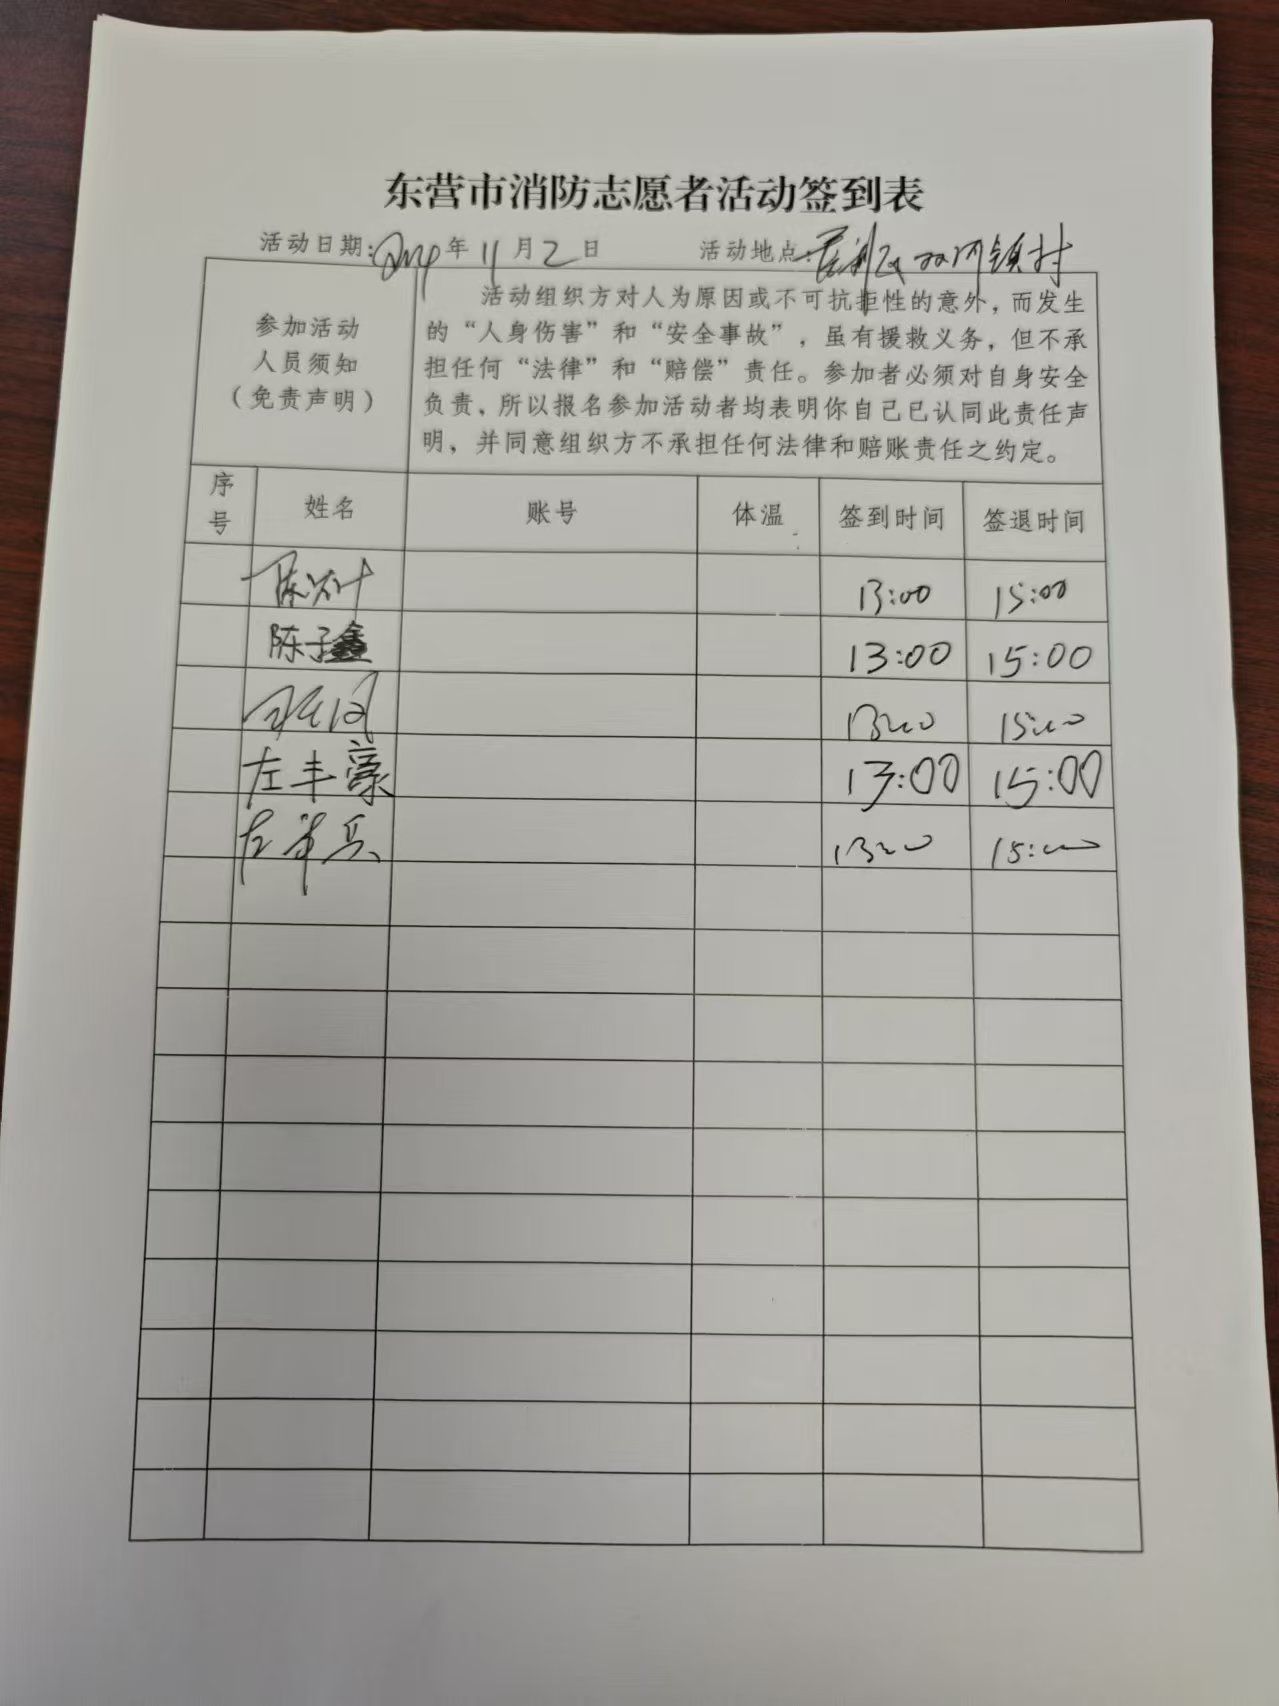 东营市消防志愿者活动签到表
活动日期：2024年11月2日 活动地点：垦利区双河镇村
参加活动
人员须知
（免责声明）
活动组织方对人为原因或不可抗拒性的意外，而发生
的“人身伤害”和“安全事故”，虽有援救义务，但不承
担任何“法律”和“赔偿”责任。参加者必须对自身安全
负责，所以报名参加活动者均表明你自己已认同此责任声
明，并同意组织方不承担任何法律和赔账责任之约定。
序号 姓名 账号 体温 签到时间 签退时间
陈 13:00 15:00
陈子鑫 13:00 15:00
13:00 15:00
左丰豪 13:00 15:00
左 兵 13:00 15:00